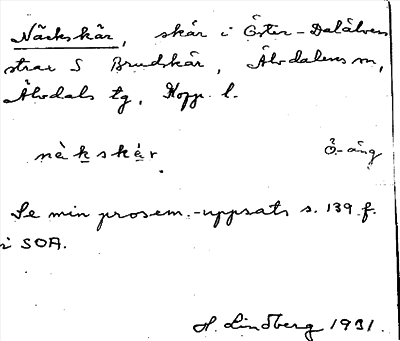 Näckskär, skär i Öster-Dalälven
strax S Brudskär, Älvdalens sn,
Älvdals tg, Kopp. l.
näkskär. Ö-äng
Se min prosem.-uppsats s. 139 f.
i SOA.
H. Lindberg 1931.